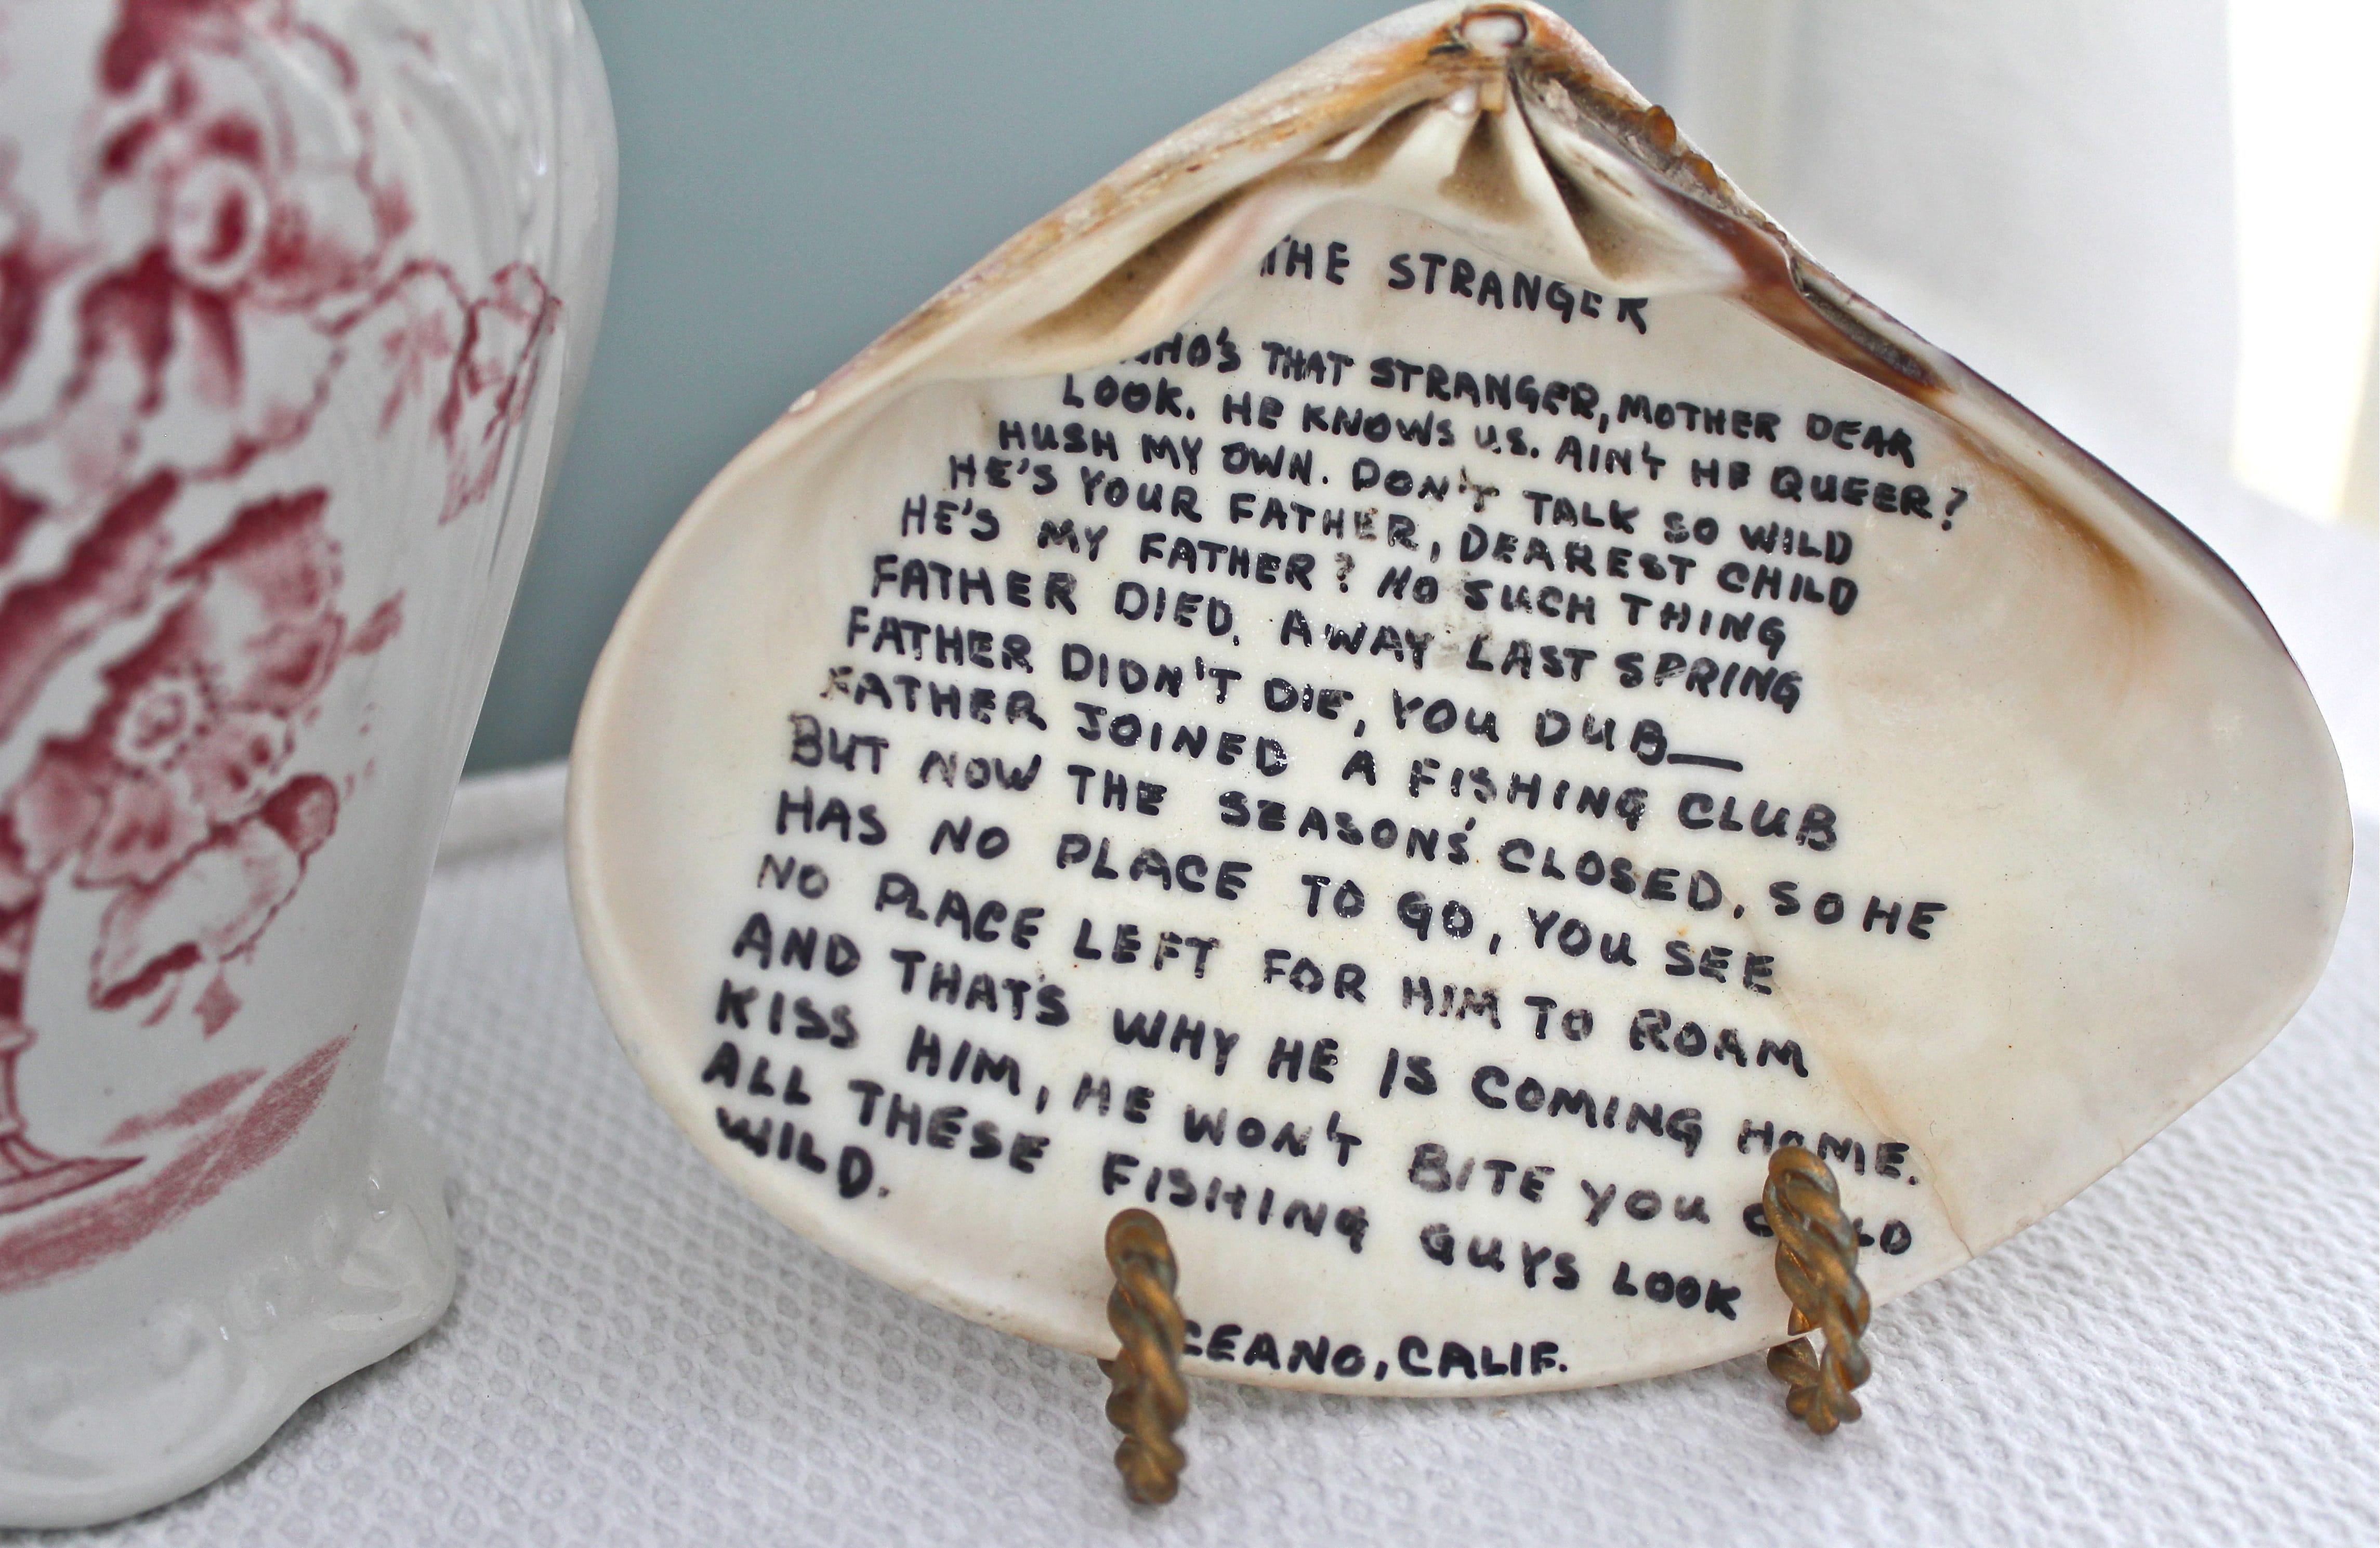 THE STRANGER
WHO'S THAT STRANGER, MOTHER DEAR
LOOK. HE KNOWS US. AIN'T HE QUEER?
HUSH MY OWN. DON'T TALK SO WILD
HE'S YOUR FATHER, DEAREST CHILD
HE'S MY FATHER? NO SUCH THING
FATHER DIED, AWAY LAST SPRING
FATHER DIDN'T DIE, YOU DUB—
FATHER JOINED A FISHING CLUB
BUT NOW THE SEASONS' CLOSED, SO HE
HAS NO PLACE TO GO, YOU SEE
NO PLACE LEFT FOR HIM TO ROAM
AND THAT'S WHY HE IS COMING HOME.
KISS HIM, HE WON'T BITE YOU CHILD
ALL THESE FISHING GUYS LOOK
WILD.
OCEANO, CALIF.